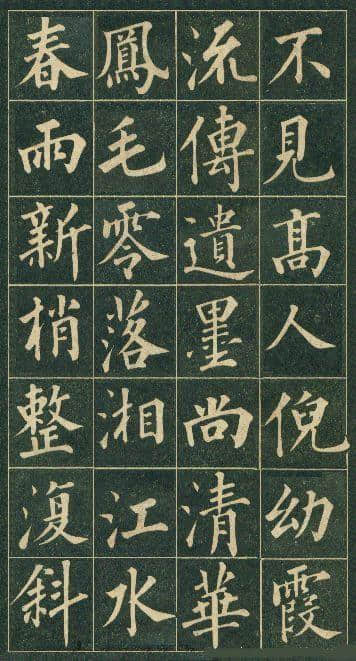 不見高人倪幼霞
流傳遺墨尚清華
鳳毛零落湘江水
春雨新梢整復斜